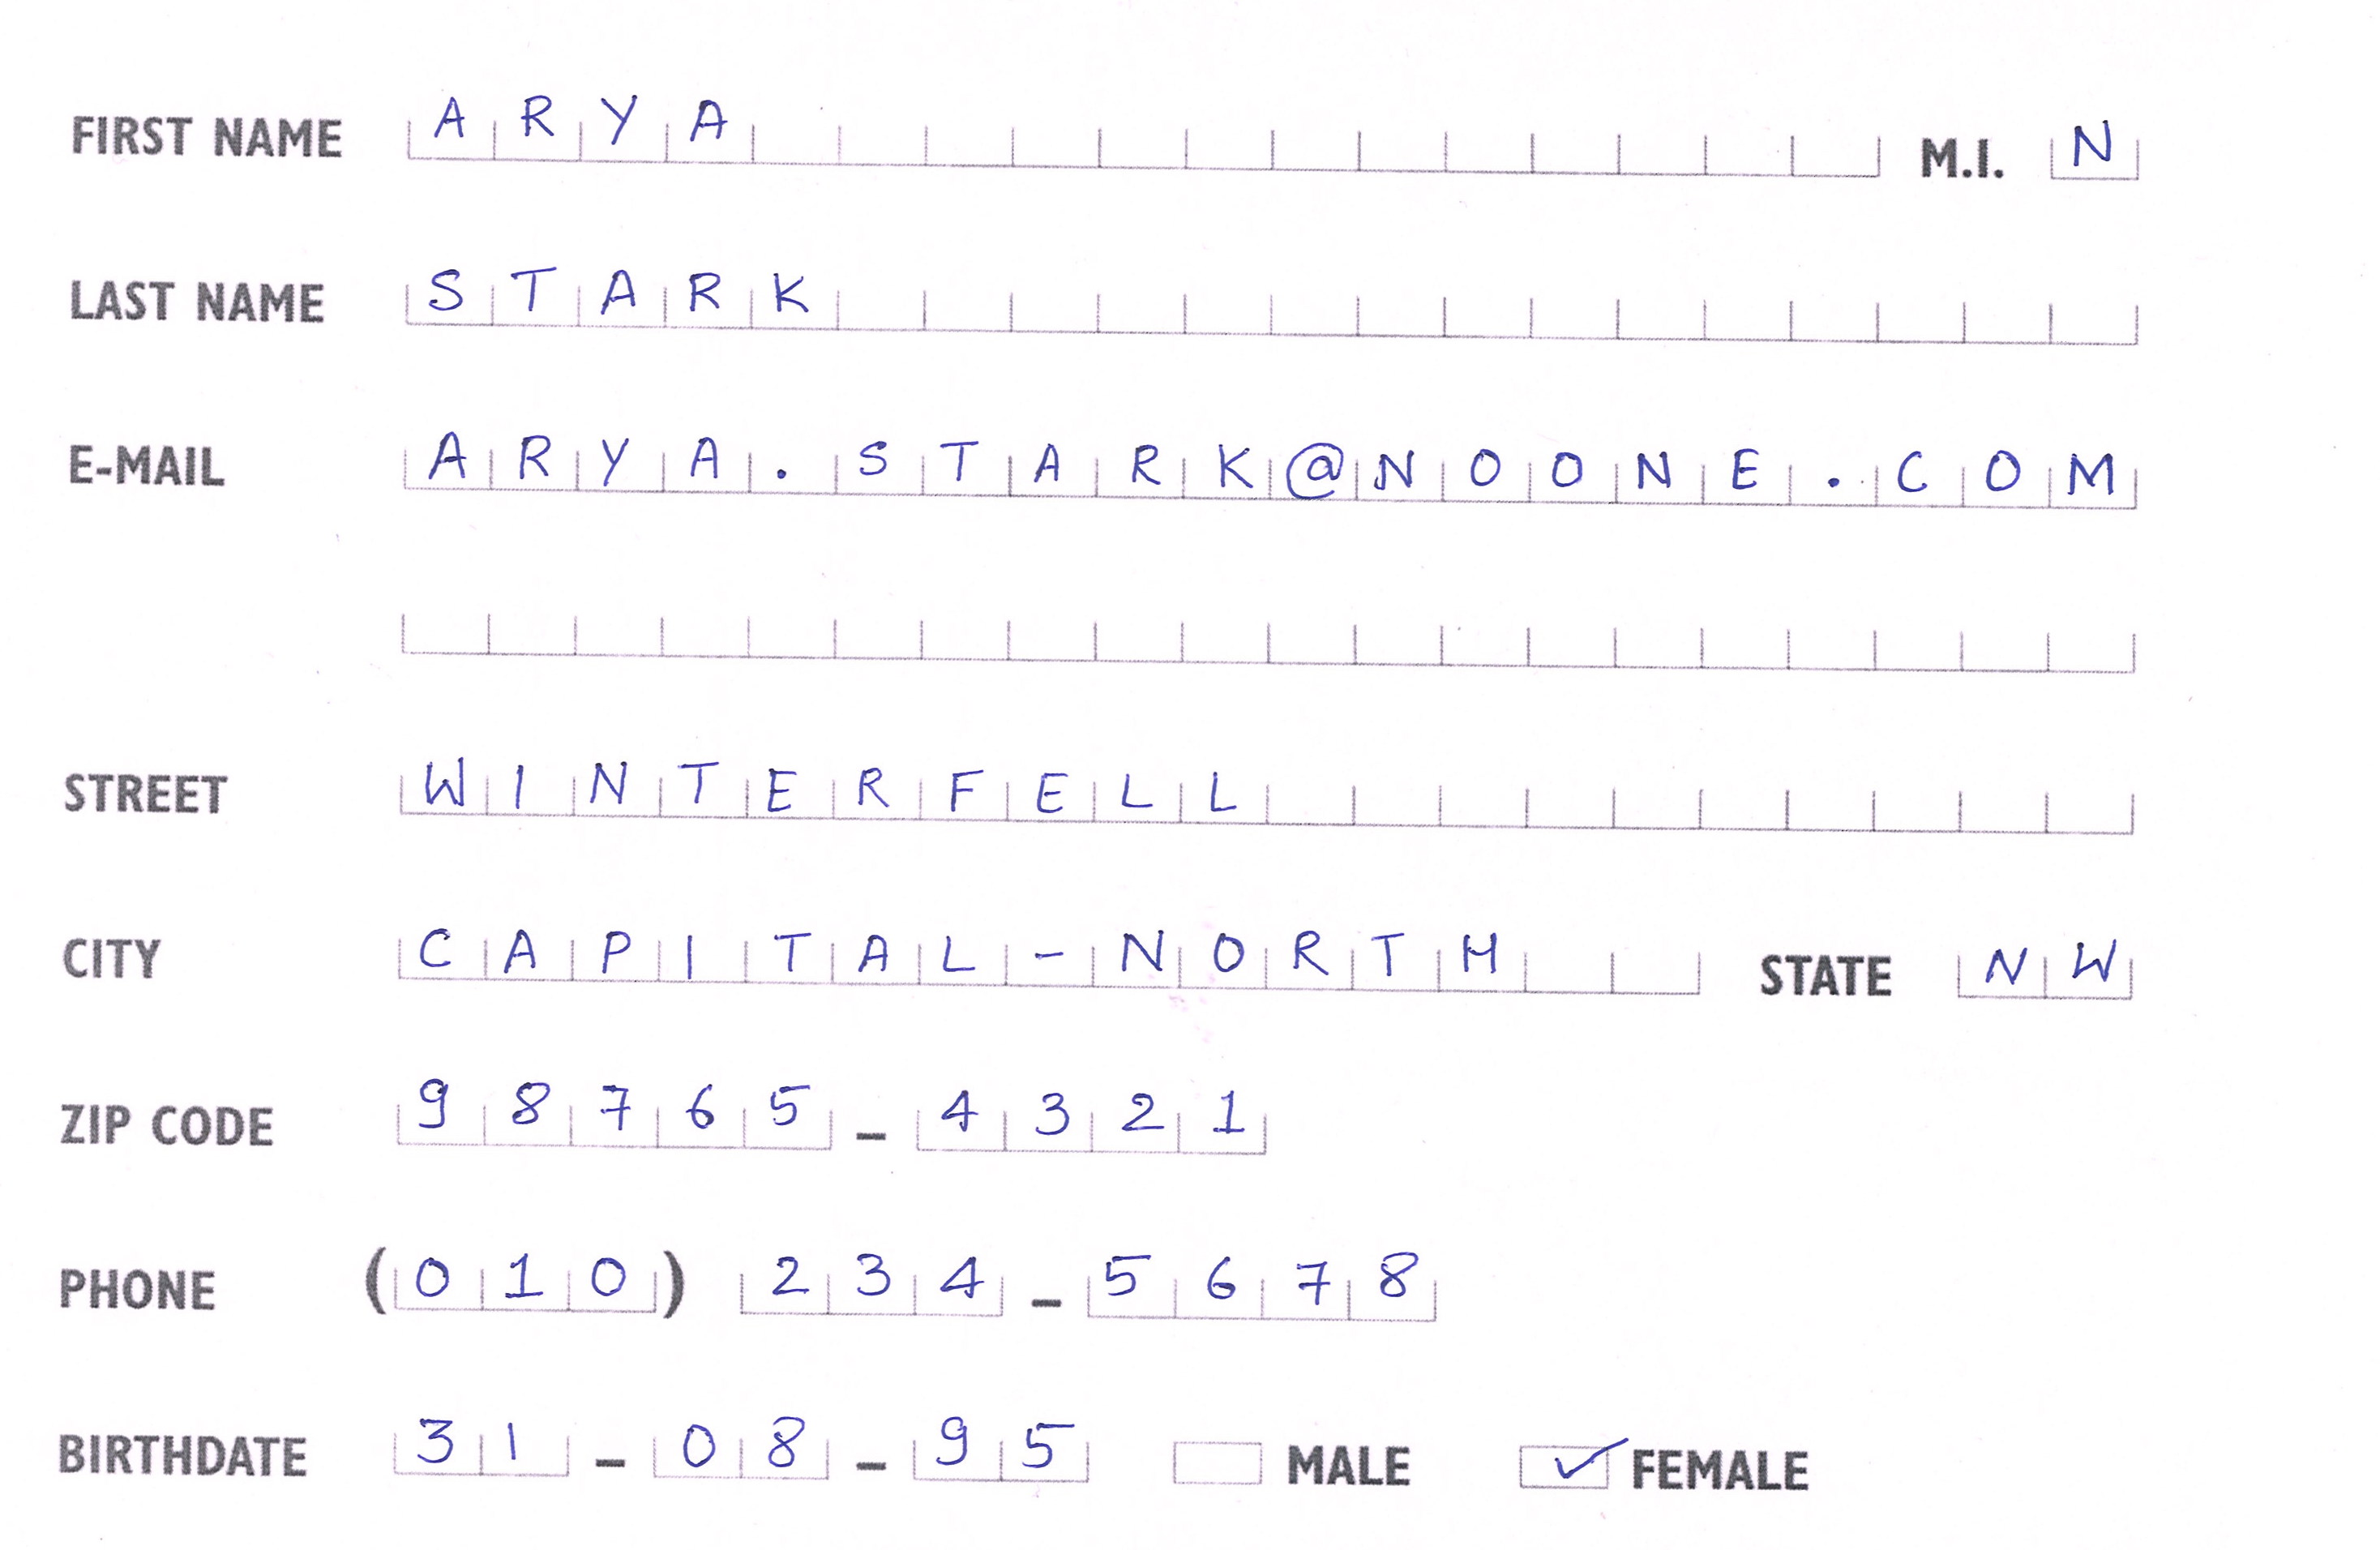 FIRST NAME ARYA M.I. N
LAST NAME STARK
E-MAIL ARYA.STARK@NOONE.COM
STREET WINTERFELL
CITY CAPITAL-NORTH STATE NW
ZIP CODE 98765-4321
PHONE (010) 234-5678
BIRTHDATE 31-08-95 MALE ✓ FEMALE